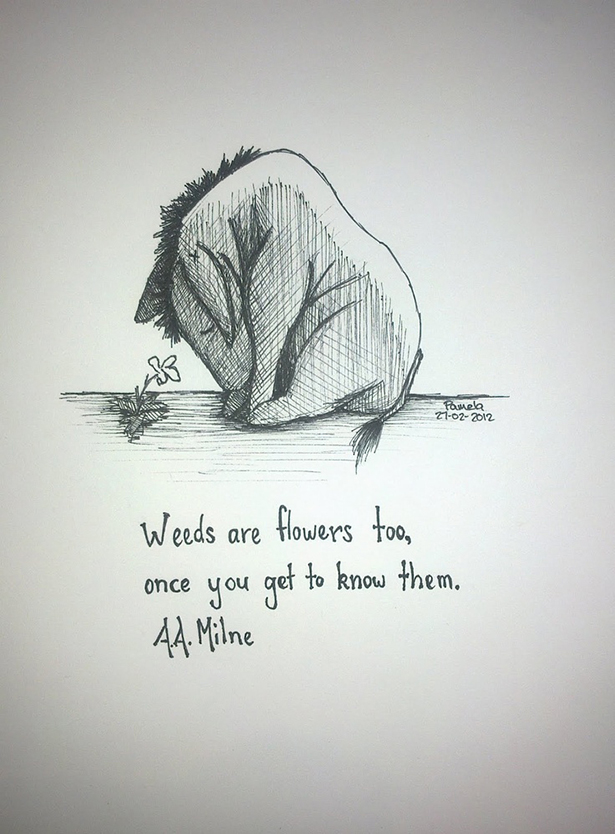 Pamela
27-02-2012
Weeds are flowers too,
once you get to know them.
A.A. Milne